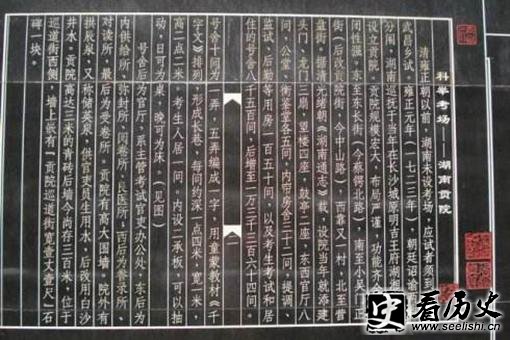 科举考场——湖南贡院
清雍正朝以前，湖南未设考场，应试者须到
武昌乡试。雍正元年（一七二三），朝廷诏谕
分闱，湖南巡抚于当年在长沙城原明吉王府湖
设计贡院。贡院规模宏大、布局严谨，功能齐
闭性强。东至东长街（今蔡锷北路），南至小吴门正
街（后改贡院街，今中山路），西靠又一村，北至营
盘街。据清光绪朝《湖南通志》载，设院当年就添建
头门、龙门三扇，望楼四座，鼓亭二座，东西官厅八
间，公堂、衡鉴堂各五间，内帘房舍三十二间，提调、
监试、后勤等用房一百五十间，以及考生考试和居
住的号舍八千五百间，后增至一万三千三百六十四间。
号舍十间为一弄，五弄编成一字，用童蒙教材《千
字文》排列，形成长巷，每间约深一点四米，宽一米，
高二点二米。考生人居一间。内设二承板，可以抽
动，日可为桌，晚可为床。（见图）
号舍后为官厅，系主管考试官吏办公处，东后为
内供给所、弥封所、囤卷所、良医所，西后为誊录所、
对读所，最后为受卷所。贡院有高大围墙，院外有
拱辰泉，又称储英泉，供官吏员生用水，后改用白沙
井水。贡院高达三米的青砖后墙今尚存三百米，位于
巡道街西侧，墙上嵌有"贡院巡道街宽壹丈壹尺"石
碑一块。
看历史
www.seelishi.cn